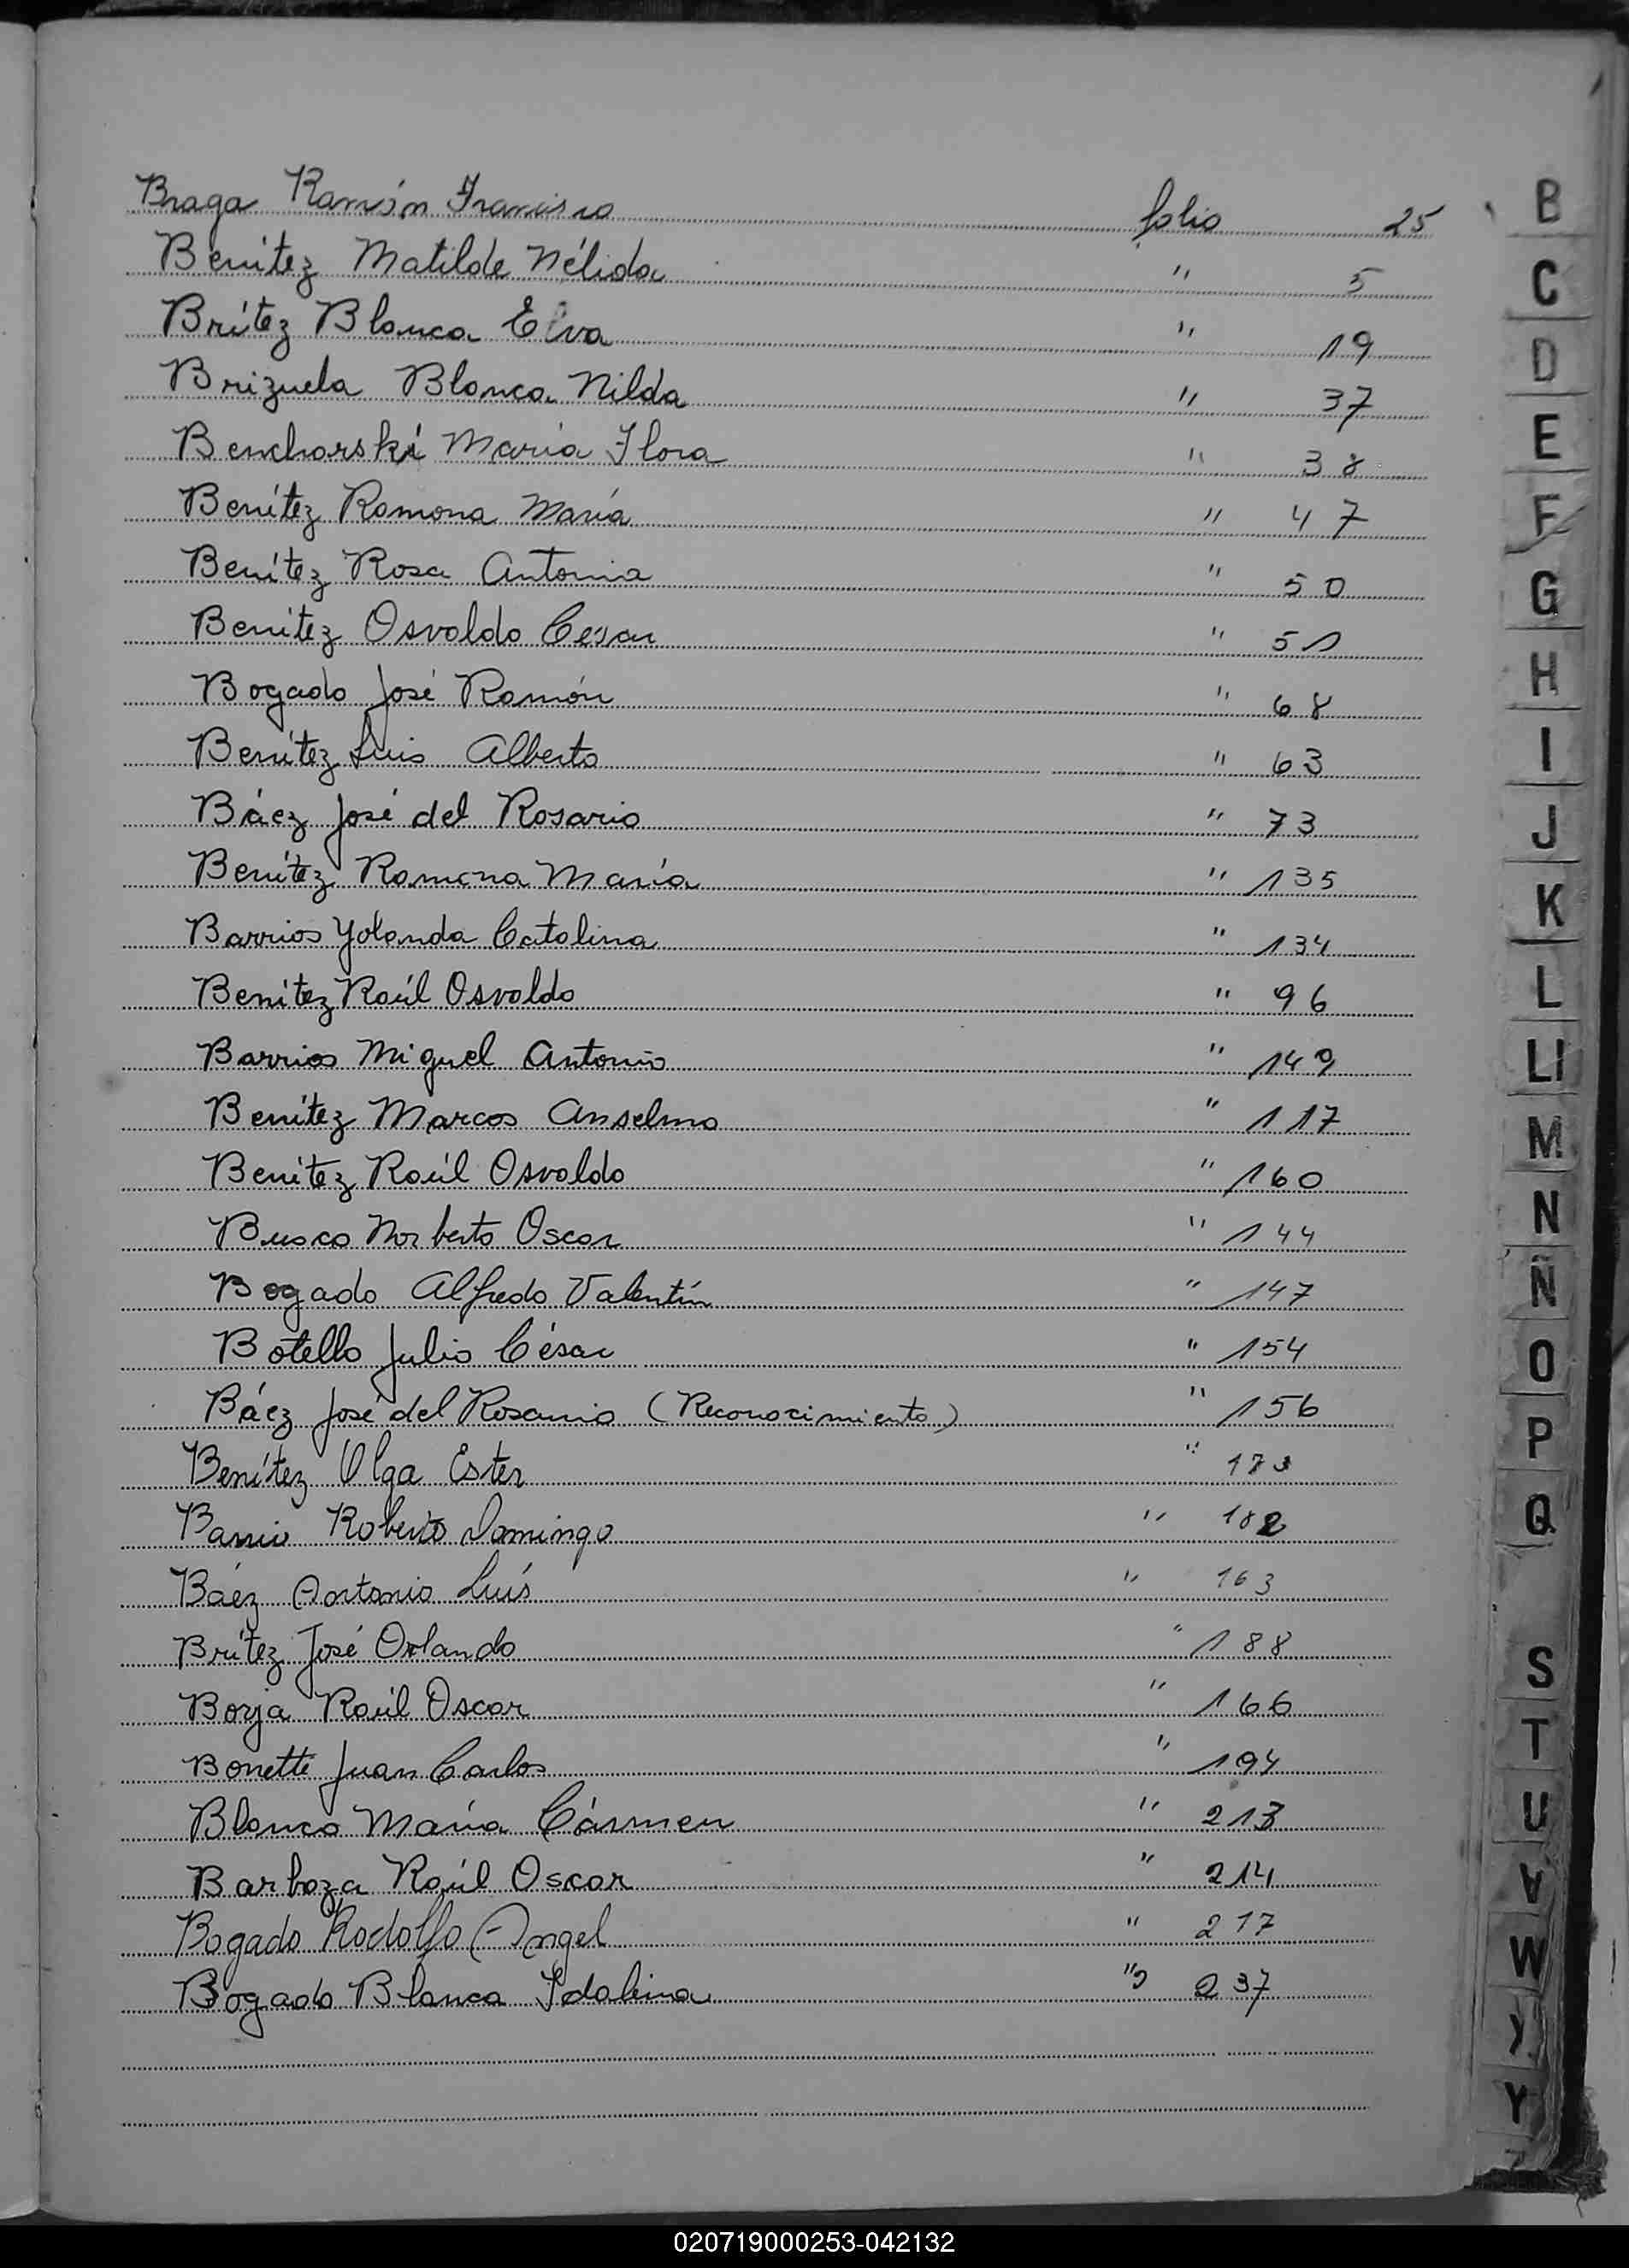 Braga Ramón Francisco folio 25
Benítez Matilde Nélida " 5
Brítez Blanca Elva " 19
Brizuela Blanca Nilda " 37
Bencharski María Flora " 38
Benítez Ramona María " 47
Benítez Rosa Antonia " 50
Benítez Osvaldo César " 51
Bogado José Ramón " 68
Benítez Luis Alberto " 63
Báez José del Rosario " 73
Benítez Ramona María " 135
Barrios Yolanda Catalina " 134
Benítez Raúl Osvaldo " 96
Barrios Miguel Antonio " 149
Benítez Marcos Anselmo " 117
Benítez Raúl Osvaldo " 160
Busco Norberto Oscar " 144
Bogado Alfredo Valentín " 147
Botello Julio César " 154
Báez José del Rosario (Reconocimiento) " 156
Benítez Olga Ester " 173
Barrio Roberto Domingo " 182
Báez Antonio Luís " 163
Brítez José Orlando " 188
Borja Raúl Oscar " 166
Bonetti Juan Carlos " 194
Blanco María Cármen " 213
Barboza Raúl Oscar " 214
Bogado Rodolfo Angel " 217
Bogado Blanca Idalina " 237
B
C
D
E
F
G
H
I
J
K
L
Ll
M
N
Ñ
O
P
Q
S
T
U
V
W
Y
020719000253-042132